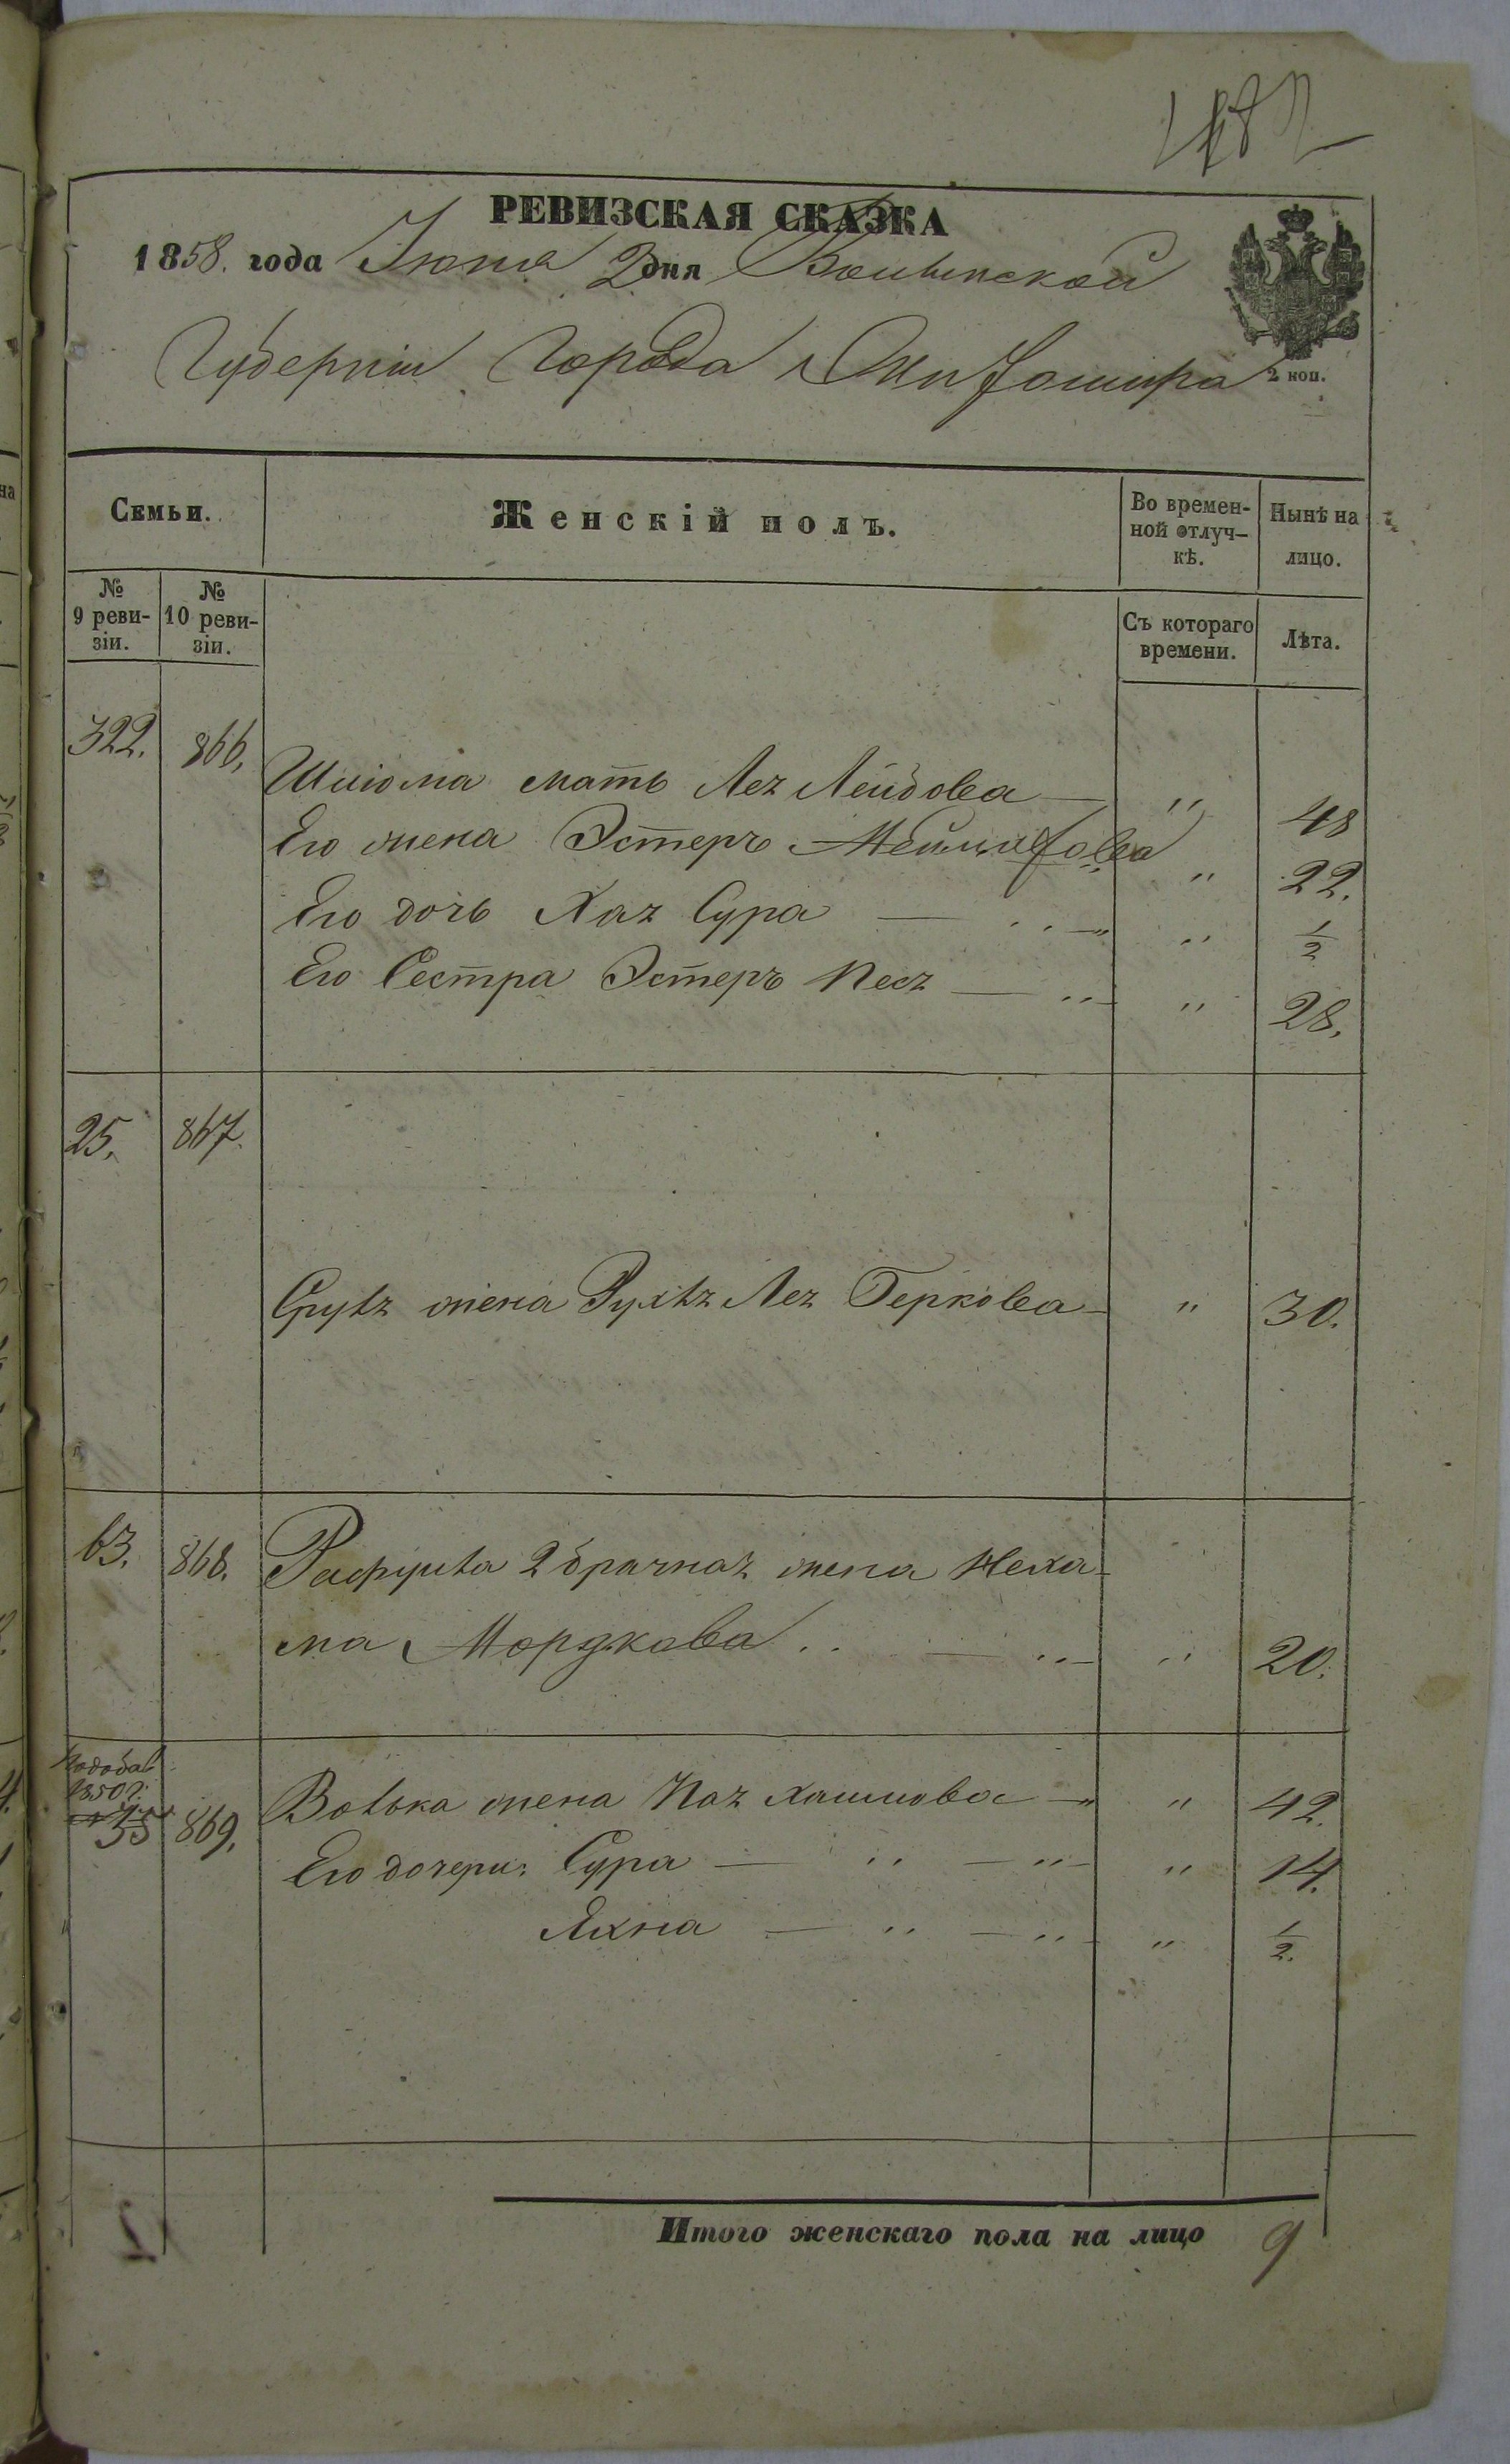 РЕВИЗСКАЯ СКАЗКА
1858. года Іюня 2 дня Волынской
Губерніи Города Житомира
2 коп.
Семьи.
Женскій полъ.
Во времен-
ной отлуч-
кѣ.
Нынѣ на
лицо.
№
9 реви-
зіи.
№
10 реви-
зіи.
Съ котораго
времени.
Лѣта.
322. 866. Шліома мать Лея Лейбова — " 48
Его жена Эстеръ " 22.
Его дочь Хая Сура — " 1/2
Его Сестра Эстеръ Песя — " 28.
25. 867.
Сруля жена Рухля Лея Беркова — " 30.
63. 868. 2 брачная жена Неха-
ма Мордкова " 20.
1850 г.
55 869. Волька жена Пая Хаимова — " 42.
Его дочери: Сура — " 14.
Яхна — " 1/2.
Итого женскаго пола на лицо 9